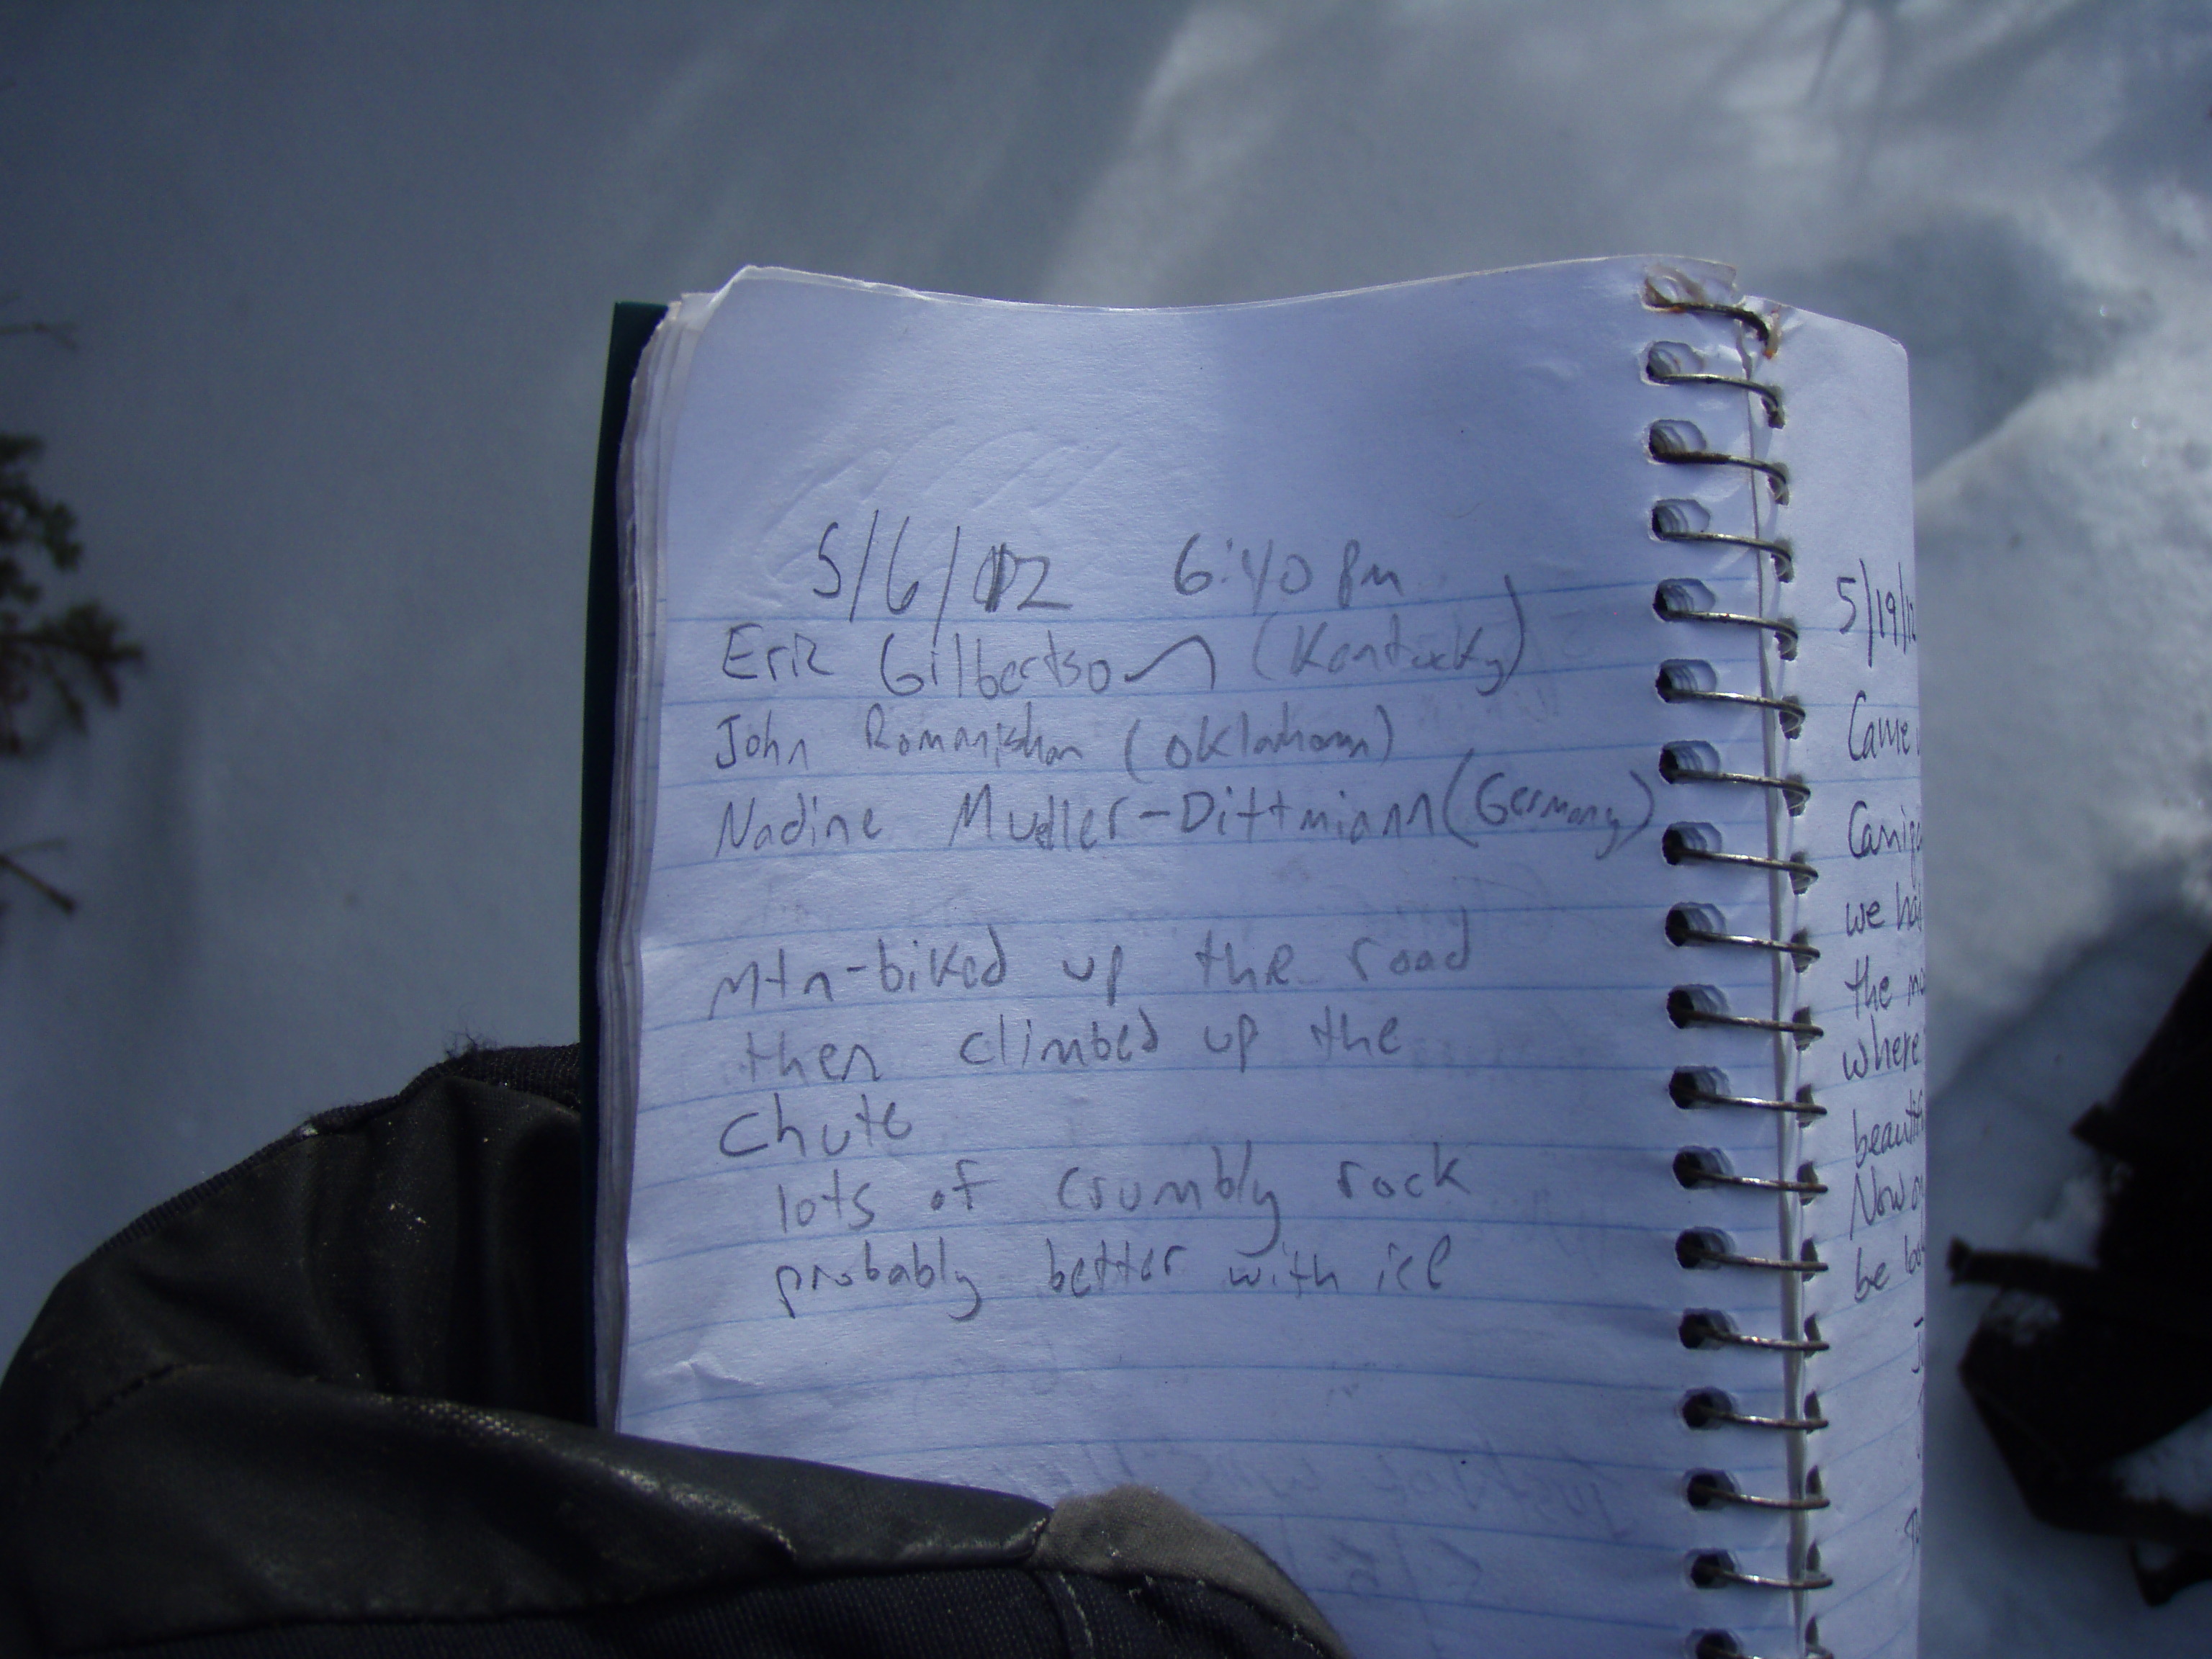 5/6/12 6:40 pm
Eric Gilbertson (Kentucky)
John Romanishan (Oklahoma)
Nadine Mueller-Dittmann (Germany)
Mtn-biked up the road
then climbed up the
chute
lots of crumbly rock
probably better with ice
5/19/12
Came
we
the
where
Now
be